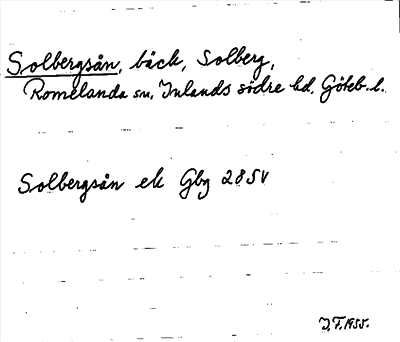 Solbergsån, bäck, Solberg,
Romelanda sn, Inlands södre hd, Göteb. l.
Solbergsån ek Gbg 28 SV
J.F. 1955.